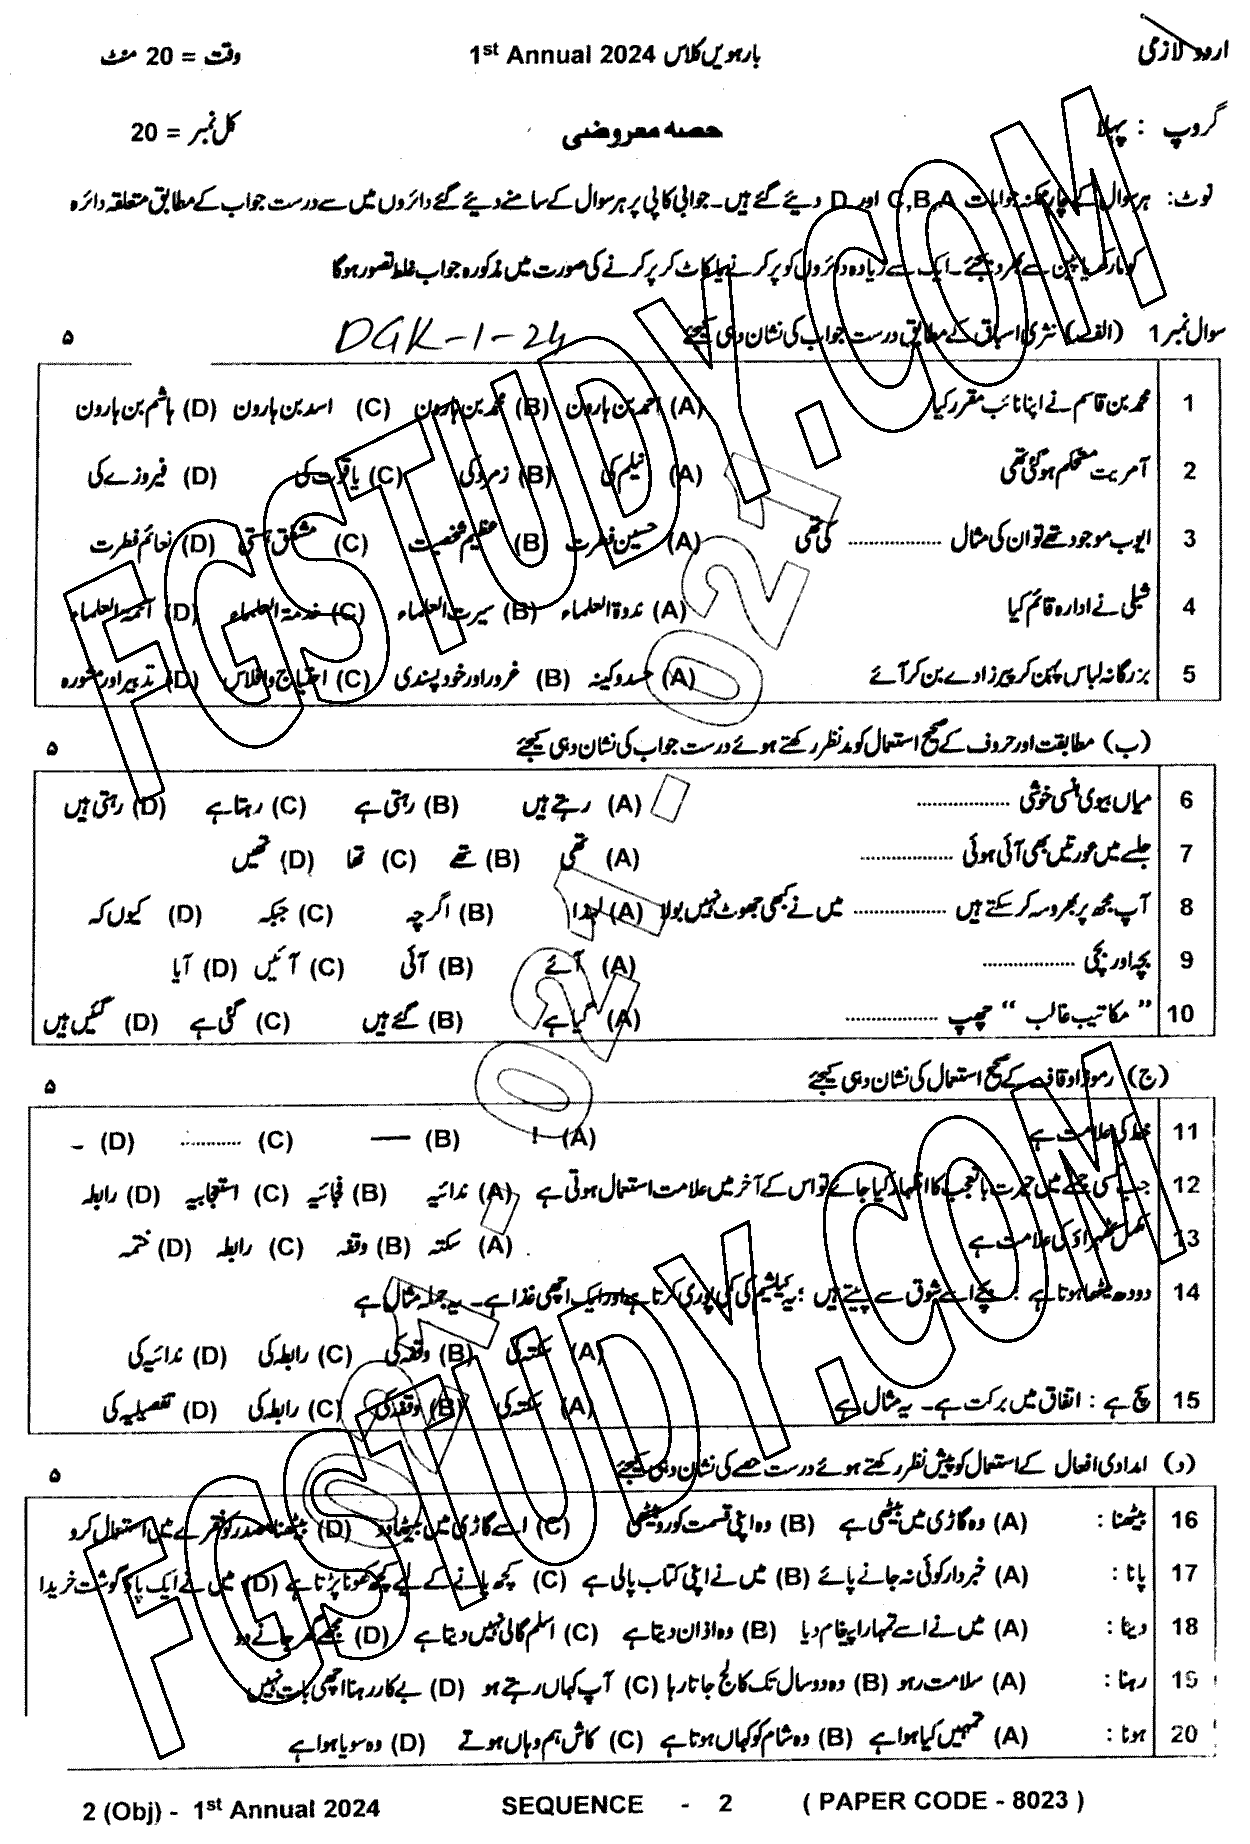 اردو لازمی بارہویں کلاس 1st Annual 2024 وقت = 20 منٹ
گروپ : پہلا حصہ معروضی کل نمبر = 20
نوٹ: ہر سوال کے چار ممکنہ جوابات C,B,A اور D دیئے گئے ہیں۔ جوابی کاپی پر ہر سوال کے سامنے دیے گئے دائروں میں سے درست جواب کے مطابق متعلقہ دائرہ
کو مارکر یا پین سے بھر دیجئے۔ ایک سے زیادہ دائروں کو پُر کرنے یا کاٹ کر پُر کرنے کی صورت میں مذکورہ جواب غلط تصور ہوگا
سوال نمبر 1 (الف) نثری اسباق کے مطابق درست جواب کی نشان دہی کیجئے DGK-1-24 ۵
1 محمد بن قاسم نے اپنا نائب مقرر کیا (A) احمد بن ہارون (B) محمد بن ہارون (C) اسد بن ہارون (D) ہاشم بن ہارون
2 آمریت مستحکم ہوگئی تھی (A) نیلم کی (B) زمرد کی (C) یاقوت کی (D) فیروزے کی
3 ایوب موجود تھے تو ان کی مثال .................. کی تھی (A) حسین فطرت (B) عظیم شخصیت (C) مشفق ہستی (D) نعائم فطرت
4 شبلی نے ادارہ قائم کیا (A) ندوۃ العلماء (B) سیرت العلماء (C) خدمۃ العلماء (D) آئمۃ العلماء
5 بزرگانہ لباس پہن کر پیرزادے بن کر آئے (A) حسد و کینہ (B) غرور اور خود پسندی (C) احتیاج و افلاس (D) تدبیر اور مشورہ
(ب) مطابقت اور حروف کے صحیح استعمال کو مدنظر رکھتے ہوئے درست جواب کی نشان دہی کیجئے ۵
6 میاں بیوی ہنسی خوشی .................. (A) رہتے ہیں (B) رہتی ہے (C) رہتا ہے (D) رہتی ہیں
7 جلسے میں عورتیں بھی آئی ہوئی .................. (A) تھی (B) تھے (C) تھا (D) تھیں
8 آپ مجھ پر بھروسہ کر سکتے ہیں .................. میں نے کبھی جھوٹ نہیں بولا (A) لہذا (B) اگرچہ (C) جبکہ (D) کیوں کہ
9 بچہ اور بچی .................. (A) آئے (B) آئی (C) آئیں (D) آیا
10 " مکاتیب غالب " چھپ .................. (A) گیا ہے (B) گئے ہیں (C) گئی ہے (D) گئیں ہیں
(ج) رموز اوقاف کے صحیح استعمال کی نشان دہی کیجئے ۵
11 خط کی علامت ہے (A) ! (B) — (C) ............ (D) ۔
12 جب کسی جملے میں حیرت یا تعجب کا اظہار کیا جائے تو اس کے آخر میں علامت استعمال ہوتی ہے (A) ندائیہ (B) فجائیہ (C) استعجابیہ (D) رابطہ
13 مکمل ٹھہراؤ کی علامت ہے (A) سکتہ (B) وقفہ (C) رابطہ (D) ختمہ
14 دودھ میٹھا ہوتا ہے ؛ بچے اسے شوق سے پیتے ہیں ؛ یہ کیلشیم کی کمی پوری کرتا ہے اور ایک اچھی غذا ہے۔ یہ جملہ مثال ہے
(A) سکتہ کی (B) وقفہ کی (C) رابطہ کی (D) ندائیہ کی
15 سچ ہے : اتفاق میں برکت ہے۔ یہ مثال ہے (A) سکتہ کی (B) وقفہ کی (C) رابطہ کی (D) تفصیلیہ کی
(د) امدادی افعال کے استعمال کو پیش نظر رکھتے ہوئے درست حصے کی نشان دہی کیجئے ۵
16 بیٹھنا : (A) وہ گاڑی میں بیٹھی ہے (B) وہ اپنی قسمت کو رو بیٹھی (C) اسے گاڑی میں بیٹھا دو (D) بیٹھنا مصدر کو فقرے میں استعمال کرو
17 پانا : (A) خبردار کوئی نہ جانے پائے (B) میں نے اپنی کتاب پالی ہے (C) کچھ پانے کے لیے کچھ کھونا پڑتا ہے (D) میں نے ایک پاؤ گوشت خریدا
18 دینا : (A) میں نے اسے تمہارا پیغام دیا (B) وہ اذان دیتا ہے (C) اسلم گالی نہیں دیتا ہے (D) مجھے گھر جانے دو
19 رہنا : (A) سلامت رہو (B) وہ دو سال تک کالج جاتا رہا (C) آپ کہاں رہتے ہو (D) بے کار رہنا اچھی بات نہیں
20 ہونا : (A) تمہیں کیا ہوا ہے (B) وہ شام کو کہاں ہوتا ہے (C) کاش ہم وہاں ہوتے (D) وہ سویا ہوا ہے
2 (Obj) - 1st Annual 2024 SEQUENCE - 2 ( PAPER CODE - 8023 )
FGSTUDY.COM
FGSTUDY.COM